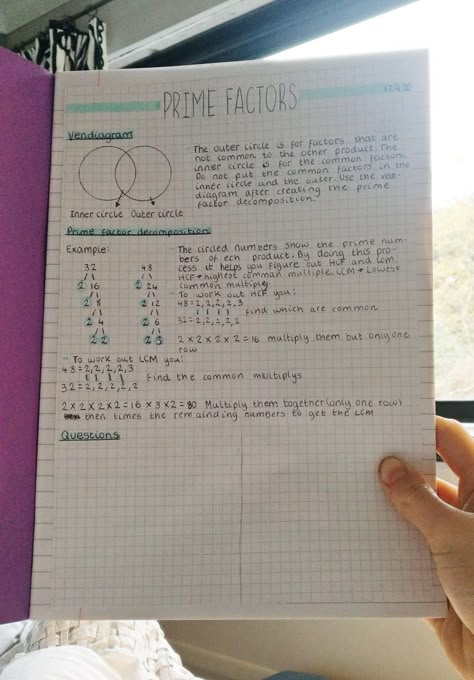 PRIME FACTORS
Vendiagram
The outer circle is for factors that are
not common to the other product. The
inner circle is for the common factors.
Do not put the common factors in the
inner circle and the outer. Use the ven-
diagram after creating the prime
factor decomposition.
Inner circle Outer circle
Prime factor decomposition
Example:
32 48
2 16 2 24
2 8 2 12
2 4 2 6
2 2 2 3
- The circled numbers show the prime num-
bers of ech product. By doing this pro-
cess it helps you figure out HCF and LCM.
HCF → highest comman multiple. LCM → Lowest
common multiple
- To work out HCF you:
48=2,2,2,2,3
find which are common
32=2,2,2,2,2
2×2×2×2=16 multiply them but only one
row
- To work out LCM you:
48=2,2,2,2,3
find the common multiplys
32=2,2,2,2,2
2×2×2×2=16 ×3×2=80 Multiply them together (only one row)
then times the remainding numbers to get the LCM
Questions